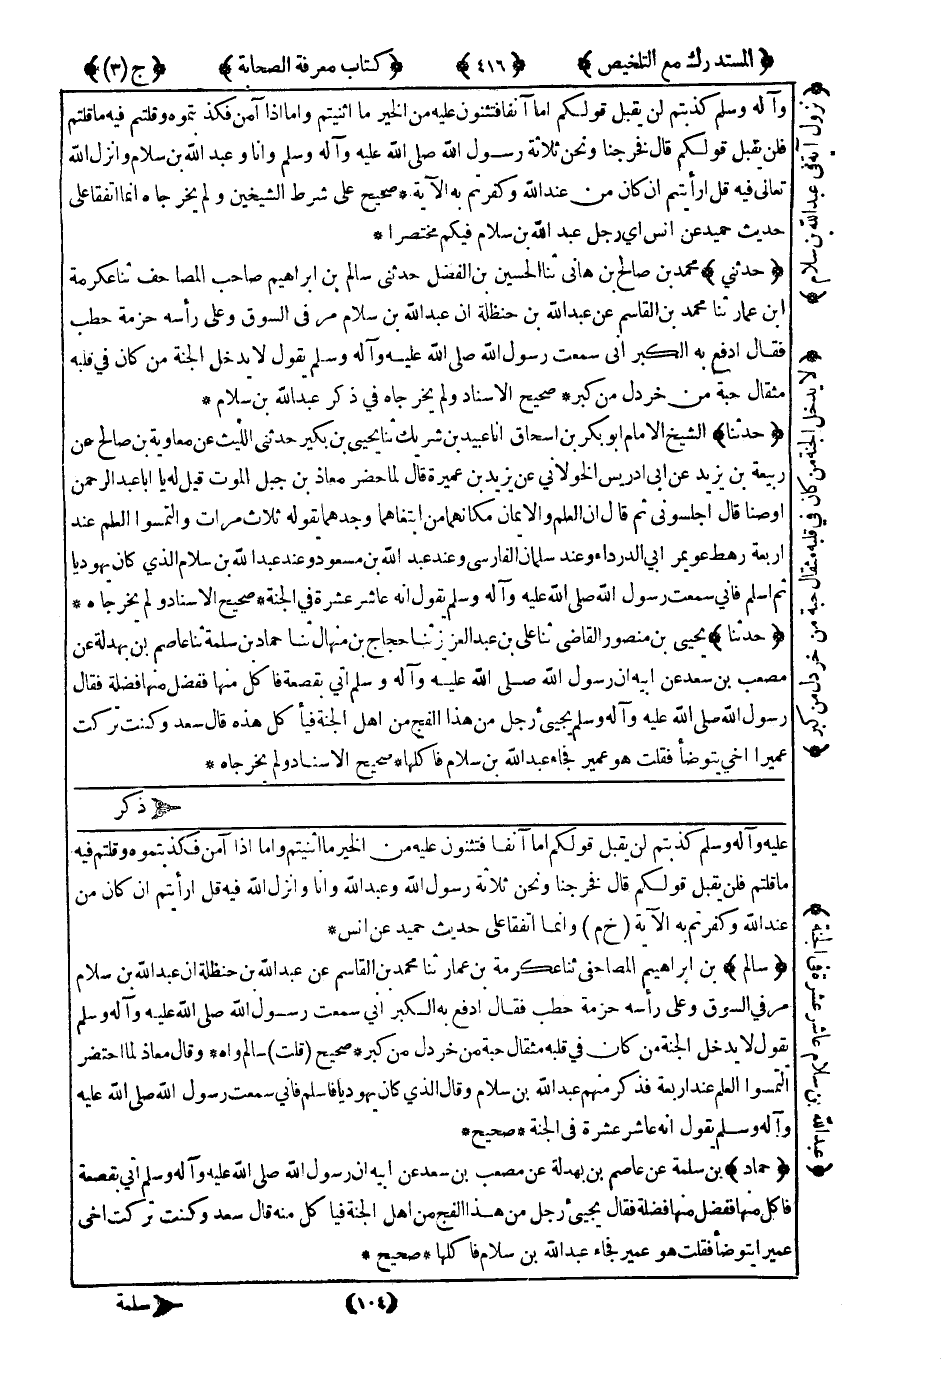 ﴿ المستدرك مع التلخيص ﴾ ﴿ ٤١٦ ﴾ ﴿ كتاب معرفة الصحابة ﴾ ﴿ ج (٣) ﴾
وآله وسلم كذبتم لن يقبل قولكم اما آنفا فتثنون عليه من الخير ما اثنيتم واما اذا آمن فكذبتموه وقلتم فيه ماقلتم
فلن يقبل قولكم قال فخرجنا ونحن ثلاثة رسول الله صلى الله عليه وآله وسلم وانا وعبد الله بن سلام وانزل الله
تعالى فيه قل ارأيتم ان كان من عندالله وكفرتم به الآية * صحيح على شرط الشيخين ولم يخرجاه انما اتفقا على
حديث حميد عن انس اي رجل عبد الله بن سلام فيكم مختصرا *
﴿ حدثني ﴾ محمد بن صالح بن هانى ثنا الحسين بن الفضل حدثنى سالم بن ابراهيم صاحب المصاحف ثنا عكرمة
ابن عمار ثنا محمد بن القاسم عن عبدالله بن حنظلة ان عبدالله بن سلام مر فى السوق وعلى رأسه حزمة حطب
فقال ادفع به الكبر انى سمعت رسول الله صلى الله عليه وآله وسلم يقول لا يدخل الجنة من كان في قلبه
مثقال حبة من خردل من كبر * صحيح الاسناد ولم يخرجاه في ذكر عبدالله بن سلام *
﴿ حدثنا ﴾ الشيخ الامام ابو بكر بن اسحاق انا عبيد بن شريك ثنا يحيى بن بكير حدثنى الليث عن معاوية بن صالح عن
ربيعة بن يزيد عن ابى ادريس الخولاني عن يزيد بن عميرة قال لما حضر معاذ بن جبل الموت قيل له يا ابا عبدالرحمن
اوصنا قال اجلسونى ثم قال ان العلم والايمان مكانهما من ابتغاهما وجدهما يقوله ثلاث مرات والتمسوا العلم عند
اربعة رهط عويمر ابي الدرداء وعند سلمان الفارسى وعند عبد الله بن مسعود وعند عبدالله بن سلام الذي كان يهوديا
ثم اسلم فاني سمعت رسول الله صلى الله عليه وآله وسلم يقول انه عاشر عشرة في الجنة * صحيح الاسناد ولم يخرجاه *
﴿ حدثنا ﴾ يحيى بن منصور القاضى ثنا على بن عبدالعزيز ثنا حجاج بن منهال ثنا حماد بن سلمة ثنا عاصم بن بهدلة عن
مصعب بن سعد عن ابيه ان رسول الله صلى الله عليه وآله وسلم أتي بقصعة فاكل منها ففضل منها فضلة فقال
رسول الله صلى الله عليه وآله وسلم يجيئ رجل من هذا الفج من اهل الجنة فيأكل هذه قال سعد وكنت تركت
عميرا اخي يتوضأ فقلت هو عمير فجاء عبدالله بن سلام فاكلها * صحيح الاسناد ولم يخرجاه *
ذكر
عليه وآله وسلم كذبتم لن يقبل قولكم اما آنفا فتثنون عليه من الخير ما أثنيتم واما اذا آمن فكذبتموه وقلتم فيه
ماقلتم فلن يقبل قولكم قال فخرجنا ونحن ثلاثة رسول الله وعبدالله وانا وانزل الله فيه قل ارأيتم ان كان من
عندالله وكفرتم به الآية ( خ م ) وانما اتفقا على حديث حميد عن انس *
﴿ سالم ﴾ بن ابراهيم المصاحفى ثنا عكرمة بن عمار ثنا محمد بن القاسم عن عبدالله بن حنظلة ان عبدالله بن سلام
مر في السوق وعلى رأسه حزمة حطب فقال ادفع به الكبر أني سمعت رسول الله صلى الله عليه وآله وسلم
يقول لا يدخل الجنة من كان في قلبه مثقال حبة من خردل من كبر * صحيح (قلت) سالم واه * وقال معاذ لما احتضر
التمسوا العلم عند اربعة فذكر منهم عبدالله بن سلام وقال الذي كان يهوديا فاسلم فاني سمعت رسول الله صلى الله عليه
وآله وسلم يقول انه عاشر عشرة فى الجنة * صحيح *
﴿ حماد ﴾ بن سلمة عن عاصم بن بهدلة عن مصعب بن سعد عن ابيه ان رسول الله صلى الله عليه وآله وسلم أتي بقصعة
فاكل منها ففضل منها فضلة فقال يجيئ رجل من هذا الفج من اهل الجنة فيا كل منه قال سعد وكنت تركت اخى
عميرا يتوضأ فقلت هو عمير فجاء عبدالله بن سلام فاكلها * صحيح *
(١٠٤) سلمة
﴿ نزول آية في عبدالله بن سلام ﴾
﴿ لا يدخل الجنة من كان في قلبه مثقال حبة من خردل من كبر ﴾
﴿ عبدالله بن سلام عاشر عشرة فى الجنة ﴾